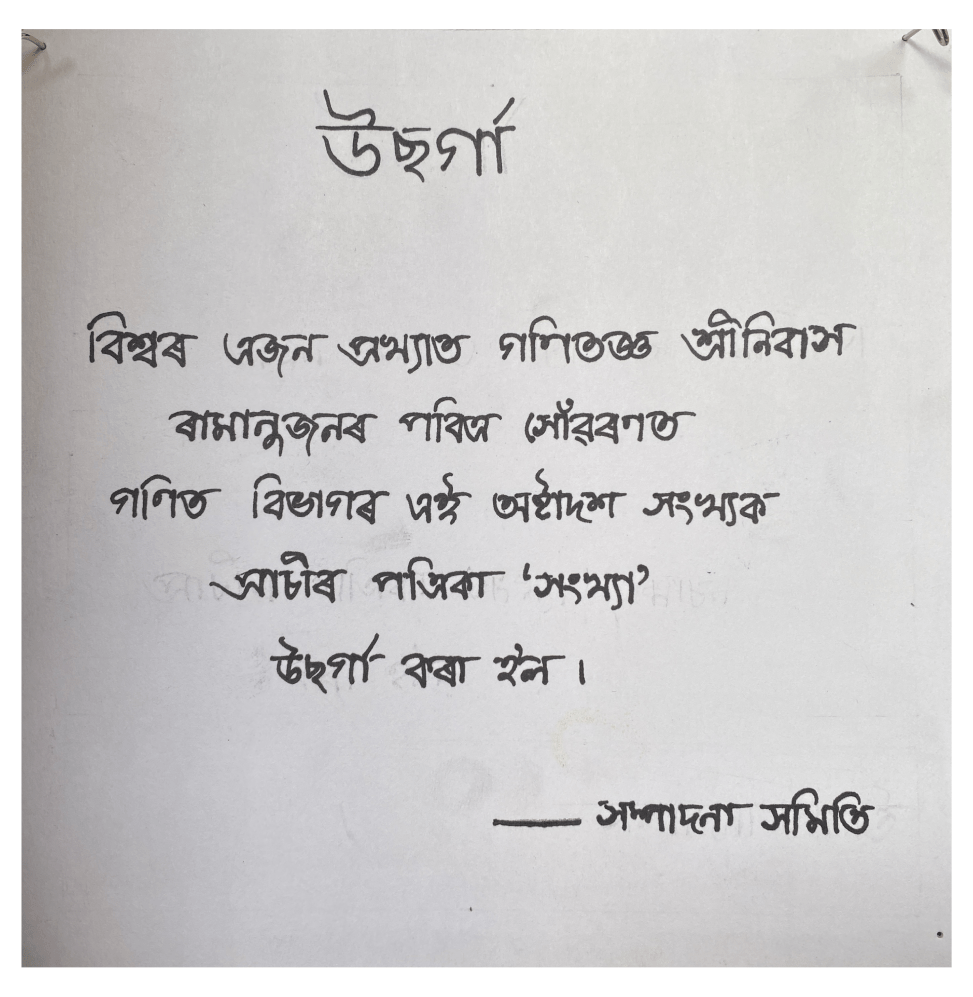 উছৰ্গা
বিশ্বৰ এজন প্ৰখ্যাত গণিতজ্ঞ শ্ৰীনিবাস
ৰামানুজনৰ পবিত্ৰ সোঁৱৰণত
গণিত বিভাগৰ এই অষ্টাদশ সংখ্যক
প্ৰাচীৰ পত্ৰিকা ‘সংখ্যা’
উছৰ্গা কৰা হ'ল ।
— সম্পাদনা সমিতি